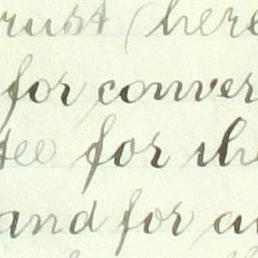 rust (here
for conver
tee for the
and for a